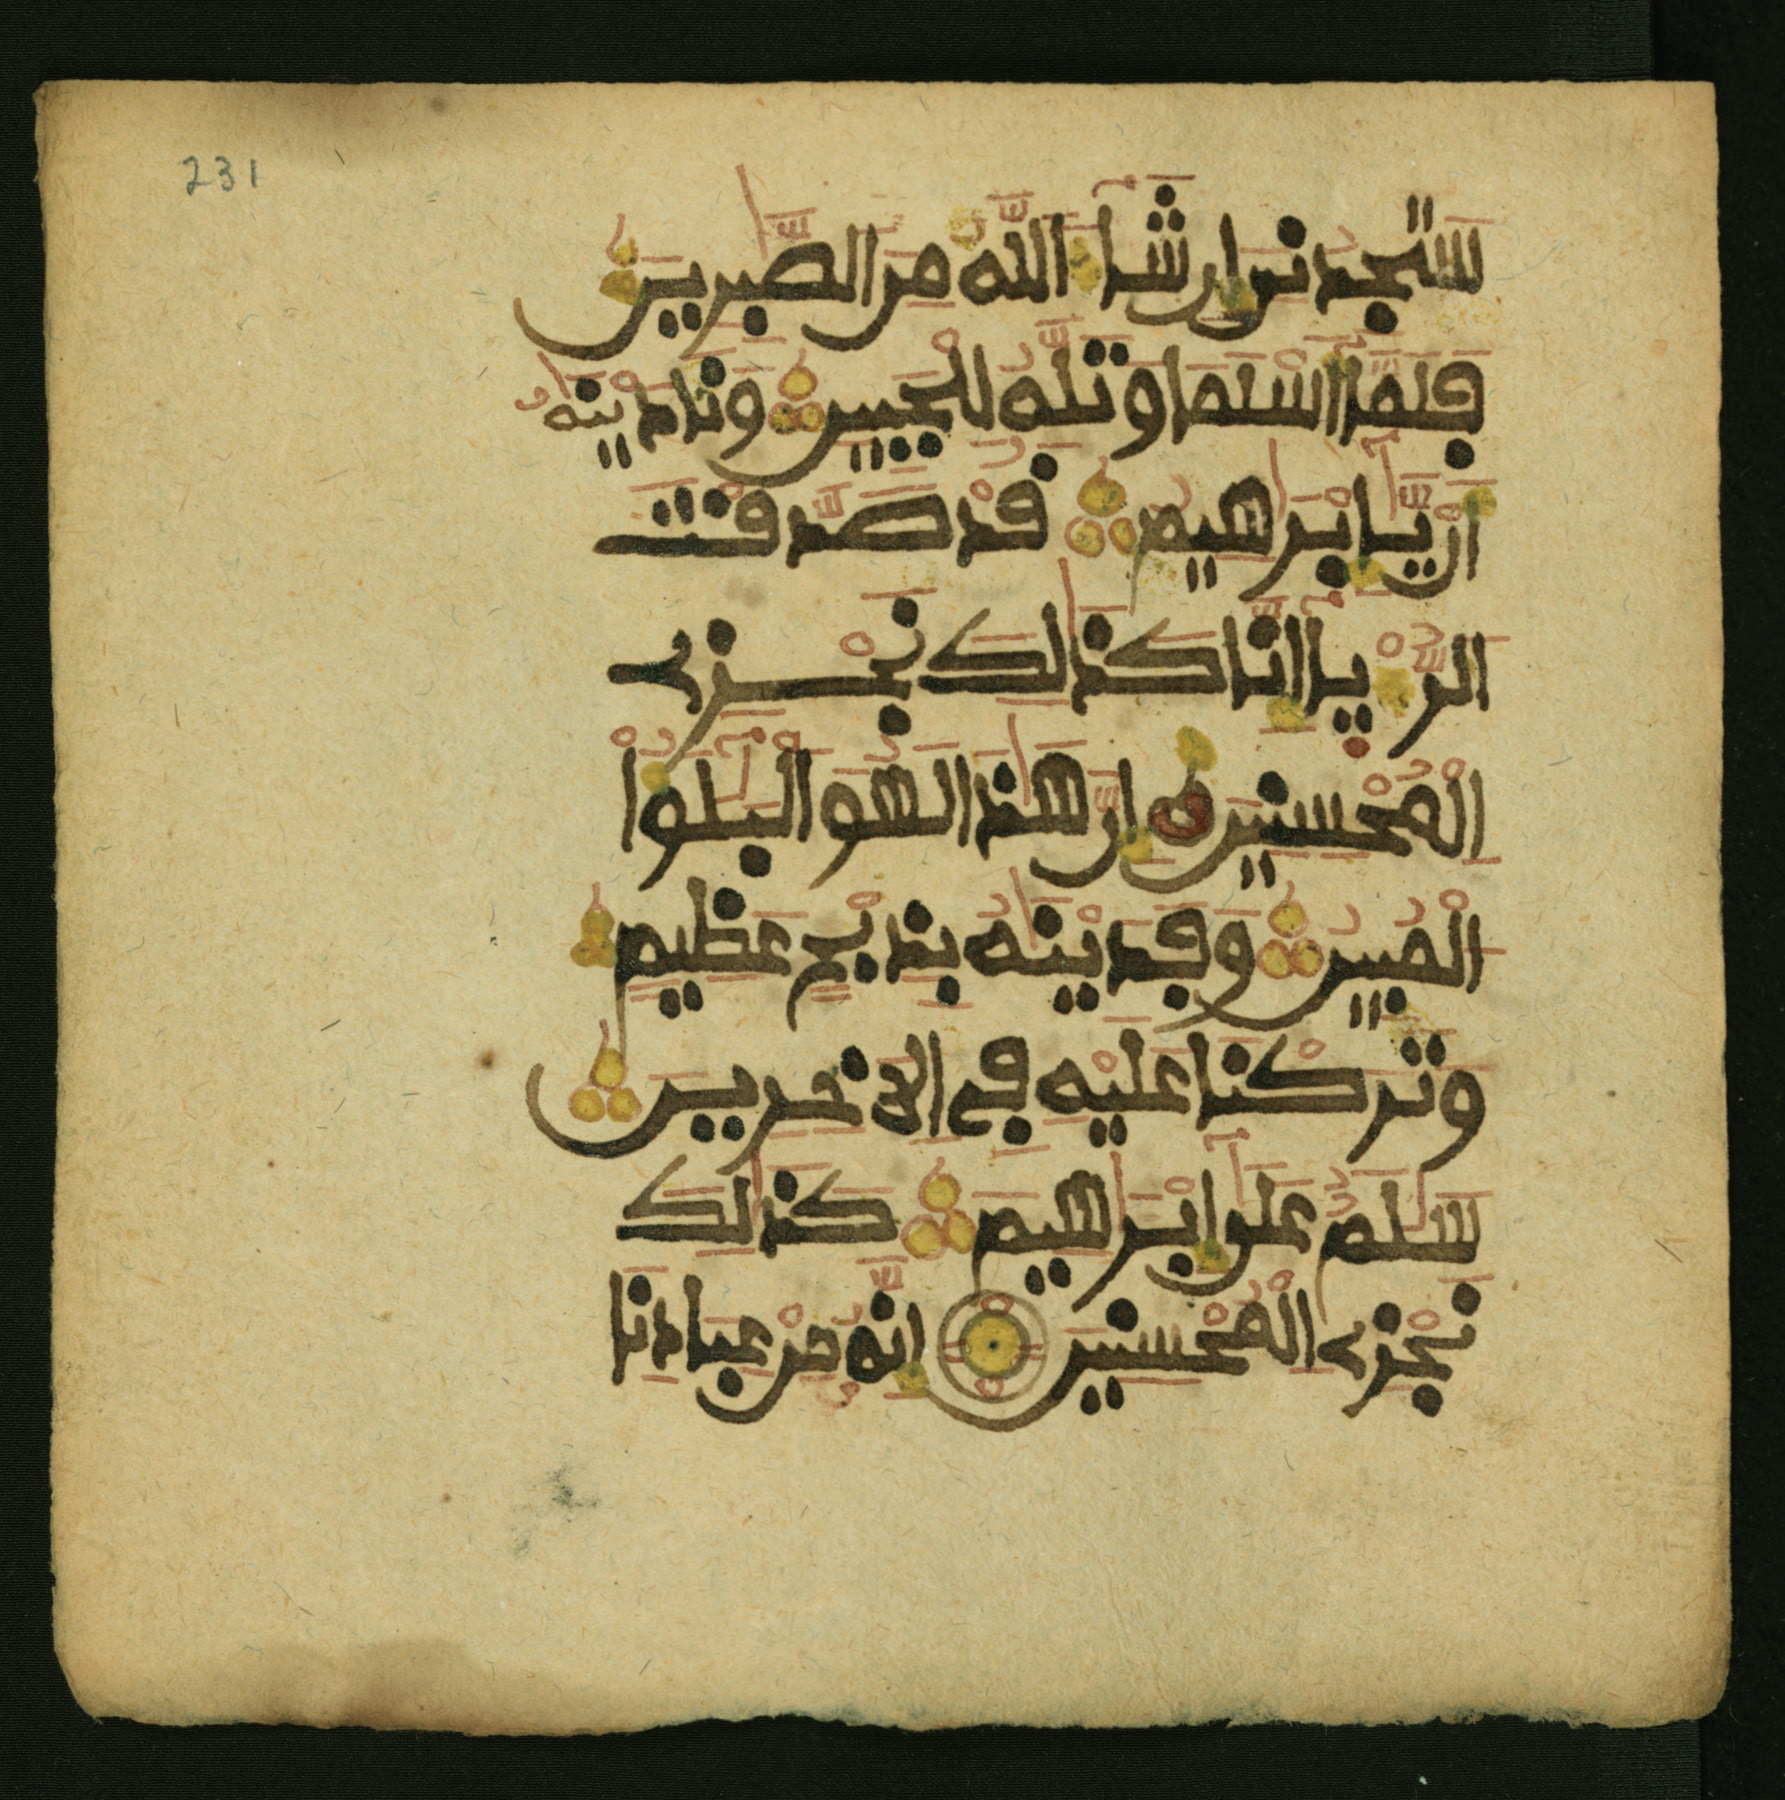 231
سَتَجِدُنِي إِن شَآءَ اللَّهُ مِنَ الصَّٰبِرِينَ
فَلَمَّآ أَسْلَمَا وَتَلَّهُ لِلْجَبِينِ وَنَادَيْنَٰهُ
أَن يَٰٓإِبْرَٰهِيمُ قَدْ صَدَّقْتَ
الرُّءْيَآ إِنَّا كَذَٰلِكَ نَجْزِي
الْمُحْسِنِينَ إِنَّ هَٰذَا لَهُوَ الْبَلَٰٓؤُاْ
الْمُبِينُ وَفَدَيْنَٰهُ بِذِبْحٍ عَظِيمٍ
وَتَرَكْنَا عَلَيْهِ فِي الْأَخِرِينَ
سَلَٰمٌ عَلَىٰٓ إِبْرَٰهِيمَ كَذَٰلِكَ
نَجْزِي الْمُحْسِنِينَ إِنَّهُ مِنْ عِبَادِنَا